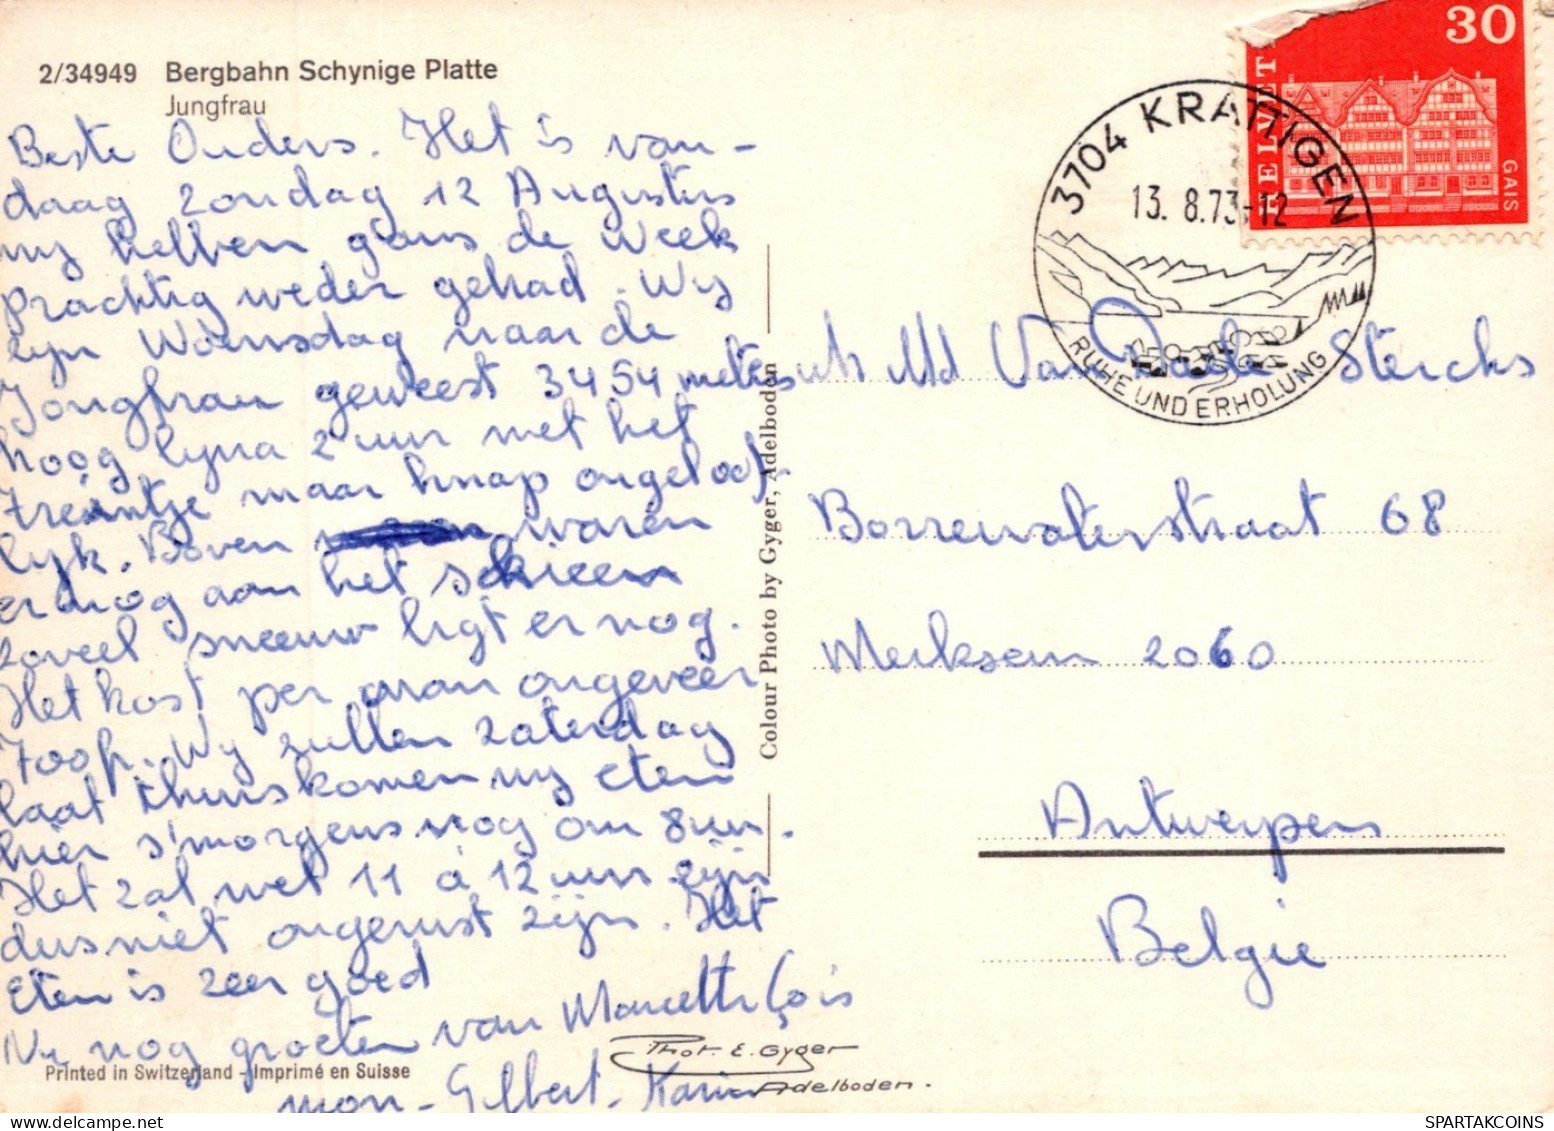 2/34949 Bergbahn Schynige Platte
Jungfrau
Beste Ouders. Het is van-
daag zondag 12 Augustus
wy hebben gans de week
prachtig weder gehad. Wy
zyn Woensdag naar de
Jongfrau geweest 3454 meters
hoog byna 2 uur met het
treintje maar knap ongeloof-
lyk. Boven waren
er nog aan het skieen
zoveel sneeuw ligt er nog.
Het kost per man ongeveer
700fr. Wy zullen zaterdag
laat thuiskomen wy eten
hier s'morgens nog om 8uur.
Het zal wel 11 à 12 uur zijn
dus niet ongerust zijn. Het
Eten is zeer goed
Nu nog groeten van
mon - Gilbert - Karin
Printed in Switzerland - Imprimé en Suisse
Phot. E. Gyger
Adelboden.
Colour Photo by Gyger, Adelboden
HELVETIA
30
GAIS
3704 KRATTIGEN
13. 8.73-12
RUHE UND ERHOLUNG
Md Van Stercks
Borrewaterstraat 68
Merksem 2060
Antwerpen
België
SPARTAKCOINS